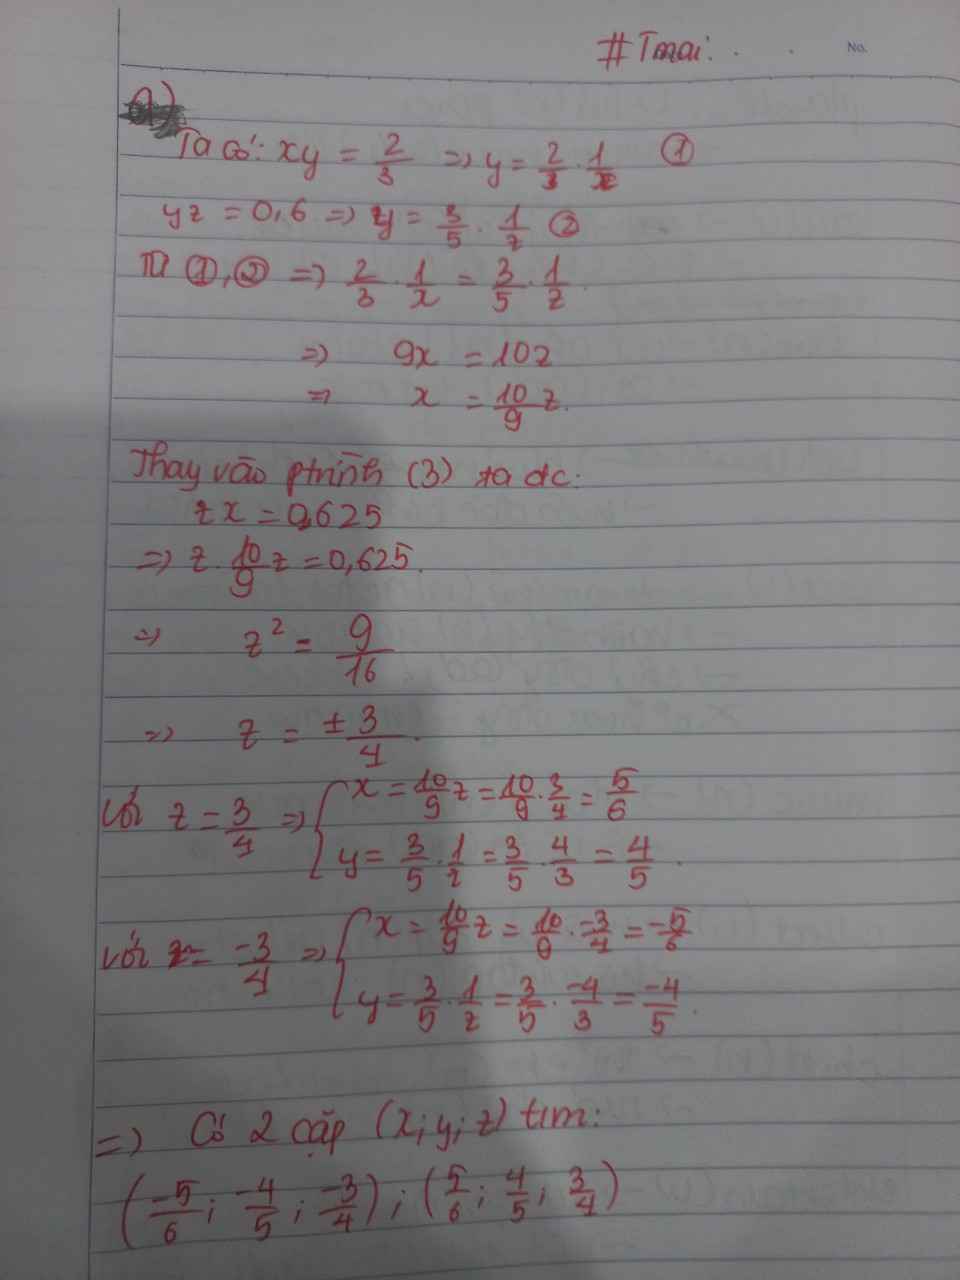 # Tmai:
No.
a)
Ta có: xy = 2/3 => y = 2/3 . 1/x ①
yz = 0,6 => y = 3/5 . 1/z ②
Từ ①, ② => 2/3 . 1/x = 3/5 . 1/z
=> 9x = 10z
=> x = 10/9 z.
Thay vào ptrình (3) ta dc:
zx = 0,625
=> z . 10/9 z = 0,625.
=> z² = 9/16
=> z = ± 3/4.
Với z = 3/4 => { x = 10/9 z = 10/9 . 3/4 = 5/6
y = 3/5 . 1/z = 3/5 . 4/3 = 4/5.
với z = -3/4 => { x = 10/9 z = 10/9 . -3/4 = -5/6
y = 3/5 . 1/z = 3/5 . -4/3 = -4/5.
=> Có 2 cặp (x; y; z) tìm:
(-5/6; -4/5; -3/4); (5/6; 4/5; 3/4)